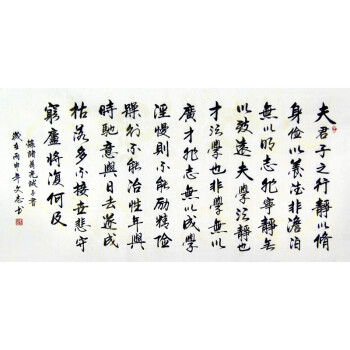 夫君子之行靜以脩
身儉以養德非澹泊
無以明志非寧靜無
以致遠夫學須靜也
才須學也非學無以
廣才非志無以成學
淫慢則不能勵精險
躁則不能治性年與
時馳意與日去遂成
枯落多不接世悲守
窮廬將復何及
錄諸葛亮誡子書
歲在丙申年文志書